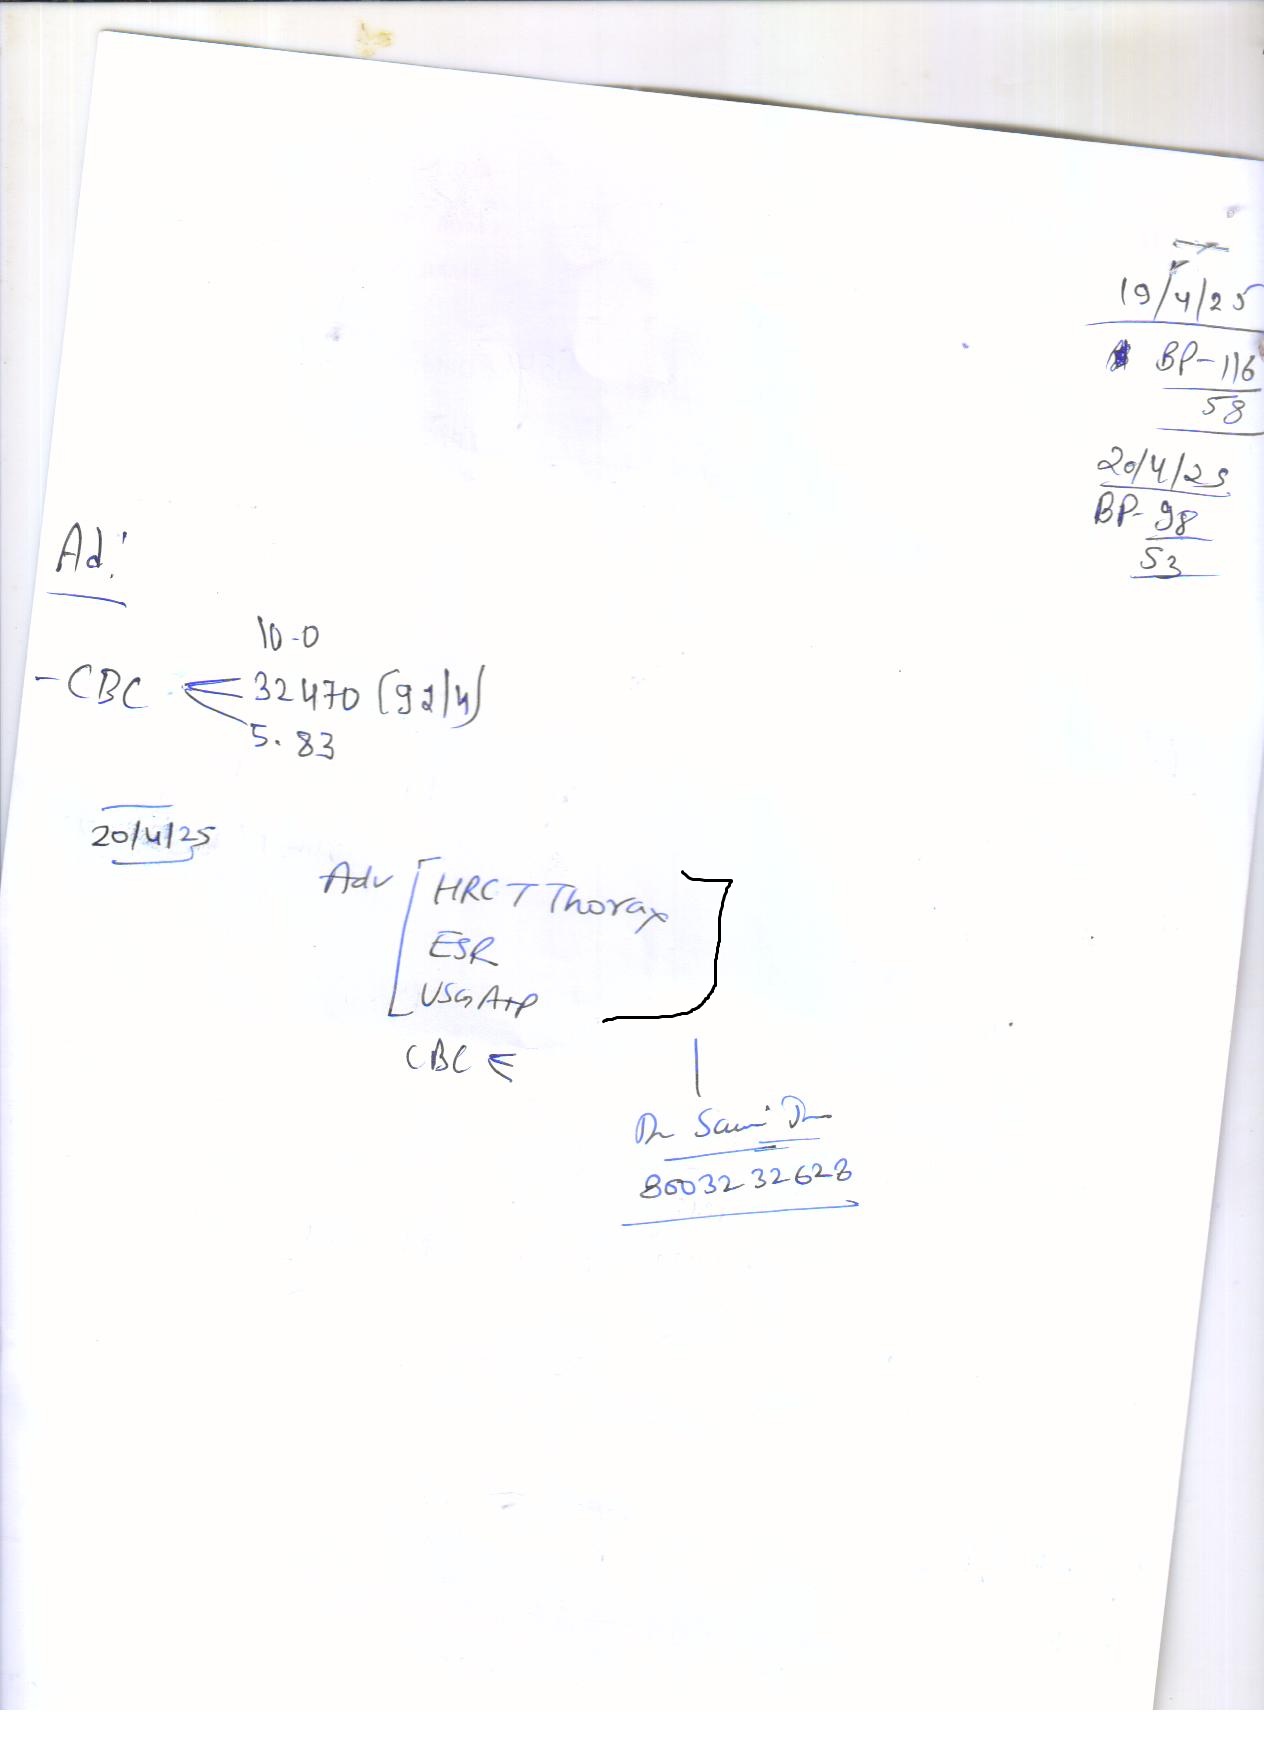 19/4/25
BP-116
58
20/4/25
BP-98
53
Ad!
10.0
-CBC 32470 (92/4)
5.83
20/4/25
Adv HRCT Thorax
ESR
USG A+P
CBC
Dr
8003232628